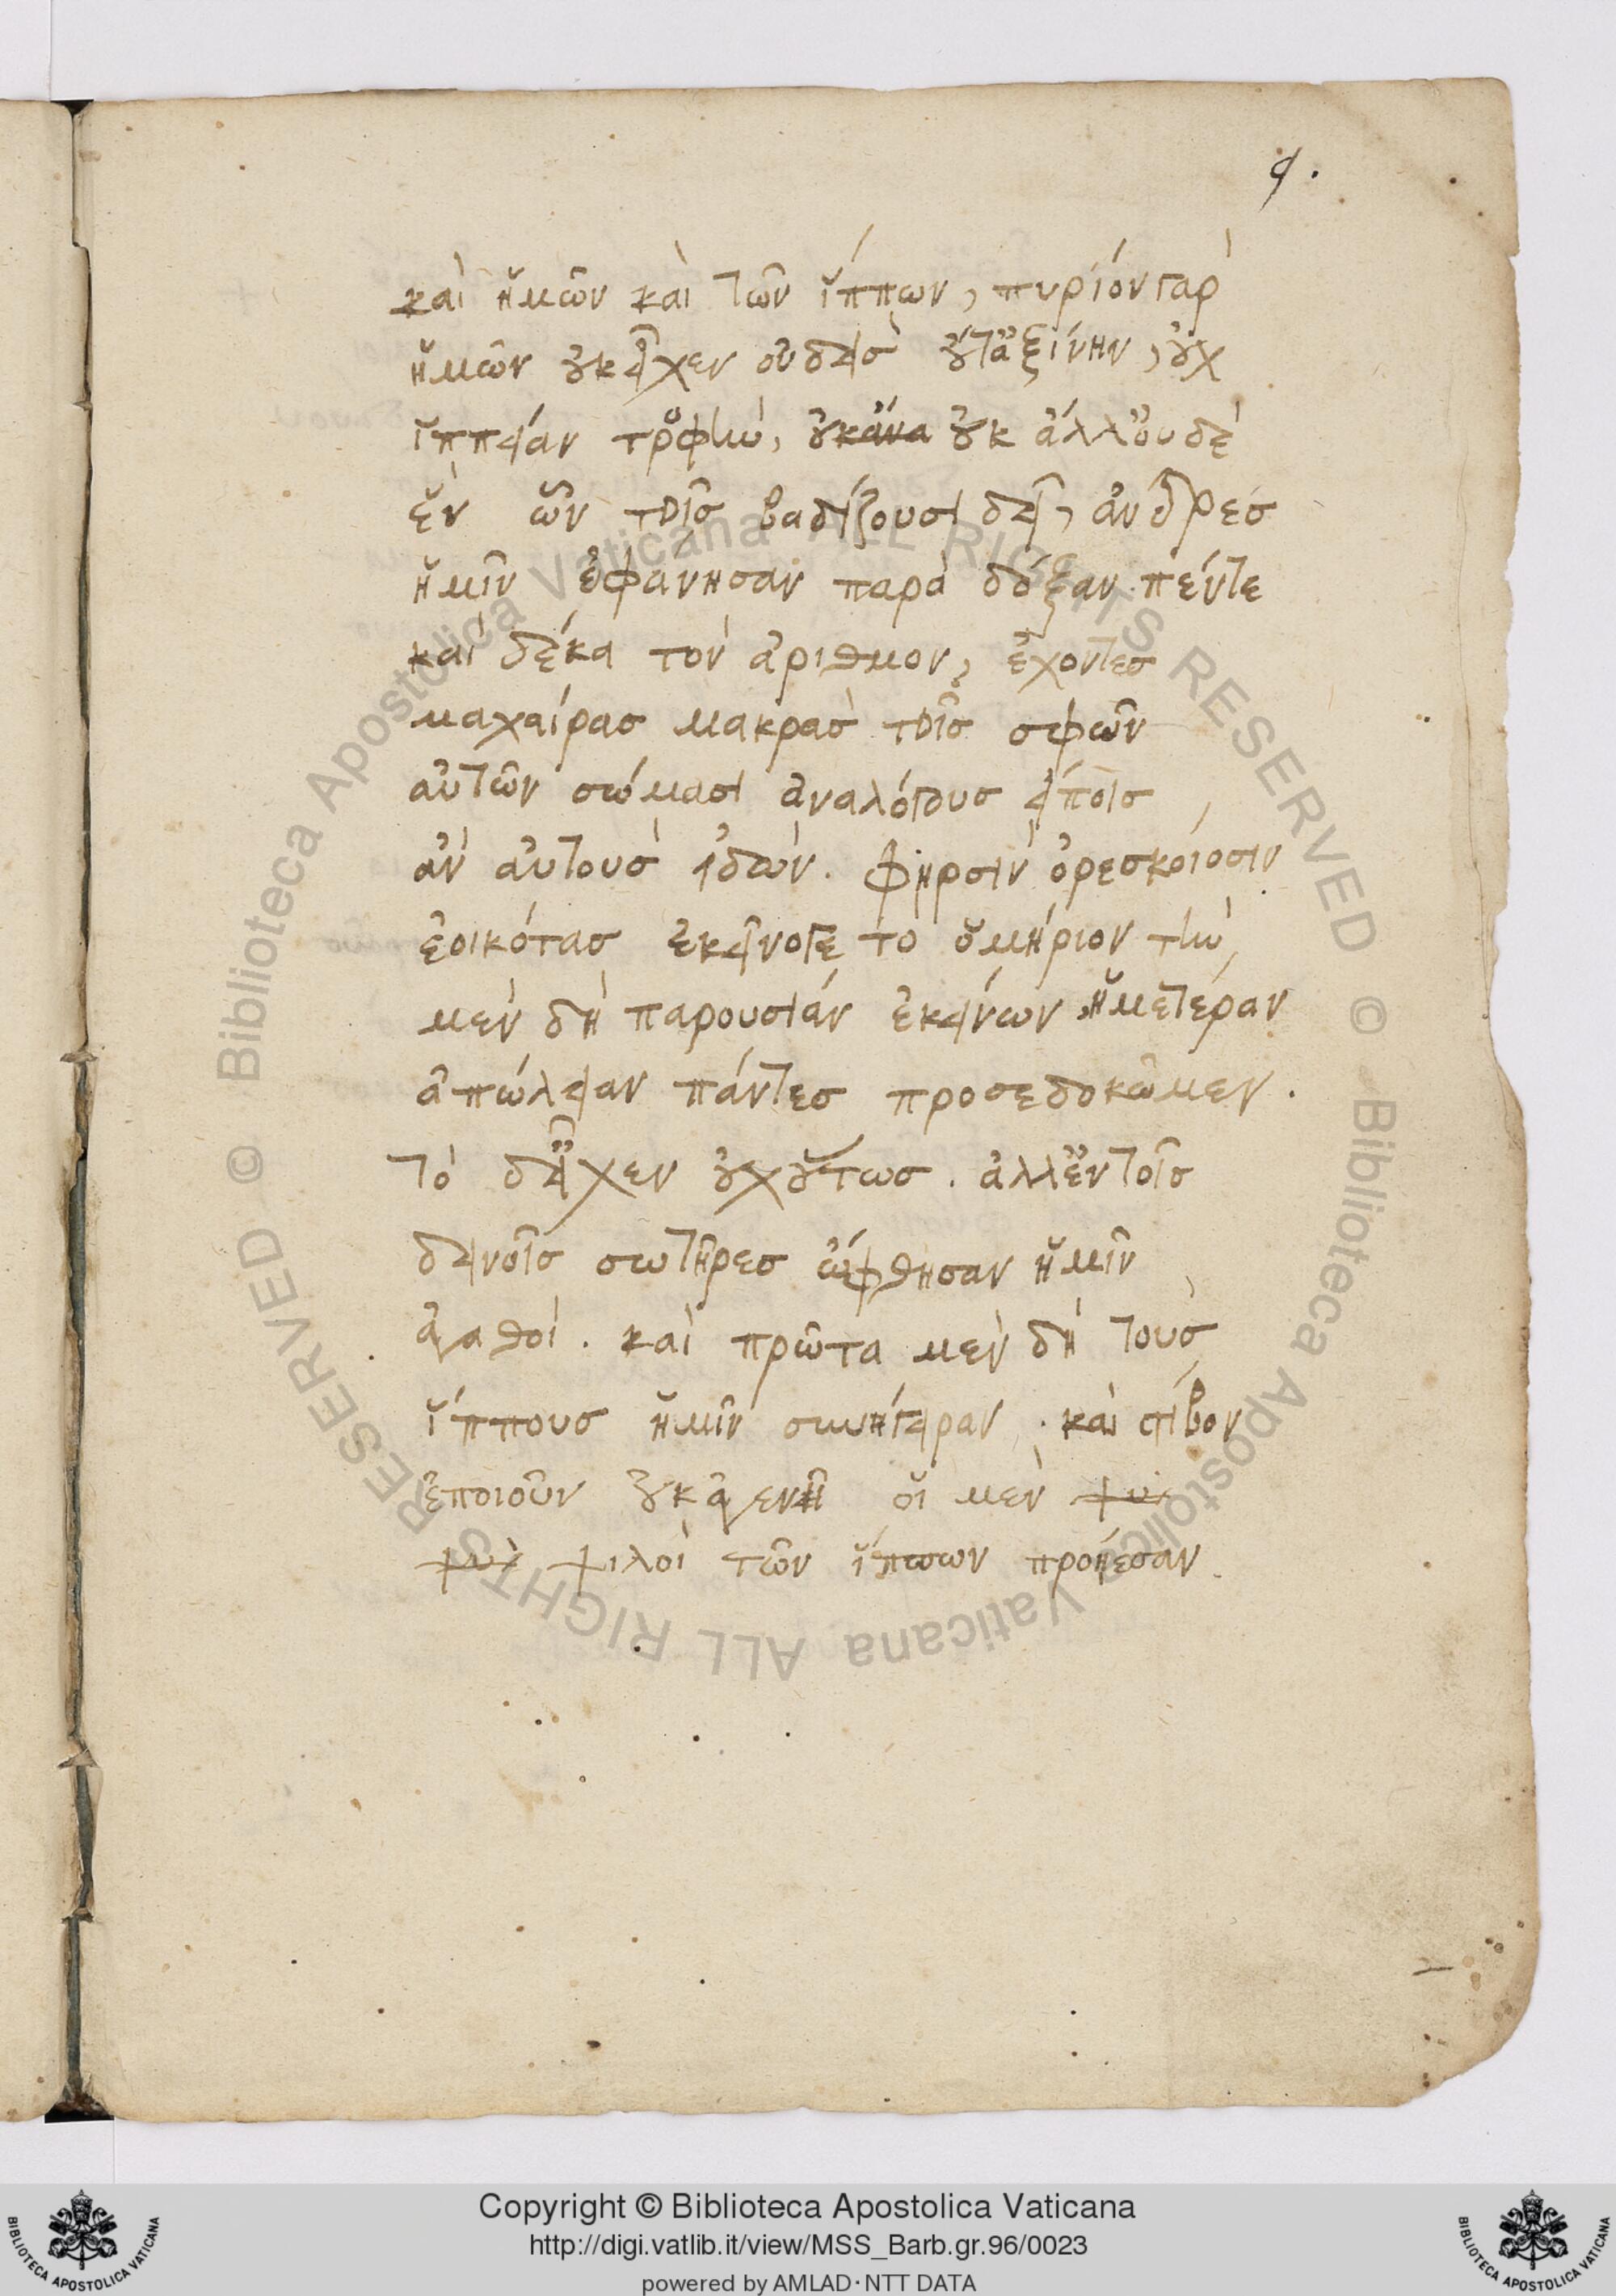 9.
καὶ ἡμῶν καὶ τῶν ἵππων, πυρίον γὰρ
ἡμῶν οὐκ εἶχεν οὐδεὶσ οὔτ' ἀξίνην, οὐχ
ἱππείαν τροφὴν, οὐκ ἄνα οὐκ ἄλλ' οὐδὲ
ἓν ὧν τοῖσ βαδίζουσι δεῖ, ἄνδρεσ
ἡμῖν ἐφάνησαν παρὰ δόξαν πέντε
καὶ δέκα τὸν ἀριθμον, ἔχοντεσ
μαχαίρασ μακρασ τοῖσ σφῶν
αὐτῶν σώμασι ἀναλόγουσ εἴποισ
ἂν αὐτοὺσ ἰδὼν. φηρσὶν ὀρεσκοίοσιν
ἐοικότασ ἐκεῖνο γε τὸ ὁμήριον τὴν
μὲν δὴ παρουσίαν ἐκείνων, ἡμετέραν
ἀπώλειαν πάντεσ προσεδοκῶμεν.
τὸ δ' εἶχεν οὐχ οὕτωσ. ἀλλ' ἐν τοῖσ
δεινοῖσ σωτῆρεσ ὤφθησαν ἡμῖν
ἀγαθοί. καὶ πρῶτα μὲν δὴ τοὺσ
ἵππουσ ἡμῖν συνήγειραν. καὶ στίβον
ἐποιοῦν οὐκ ἀγενῆ οἱ μὲν
ψιλοὶ τῶν ἵππων προῄεσαν
Copyright © Biblioteca Apostolica Vaticana
http://digi.vatlib.it/view/MSS_Barb.gr.96/0023
powered by AMLAD·NTT DATA
BIBLIOTECA APOSTOLICA VATICANA
BIBLIOTECA APOSTOLICA VATICANA
© Biblioteca Apostolica Vaticana ALL RIGHTS RESERVED
© Biblioteca Apostolica Vaticana ALL RIGHTS RESERVED